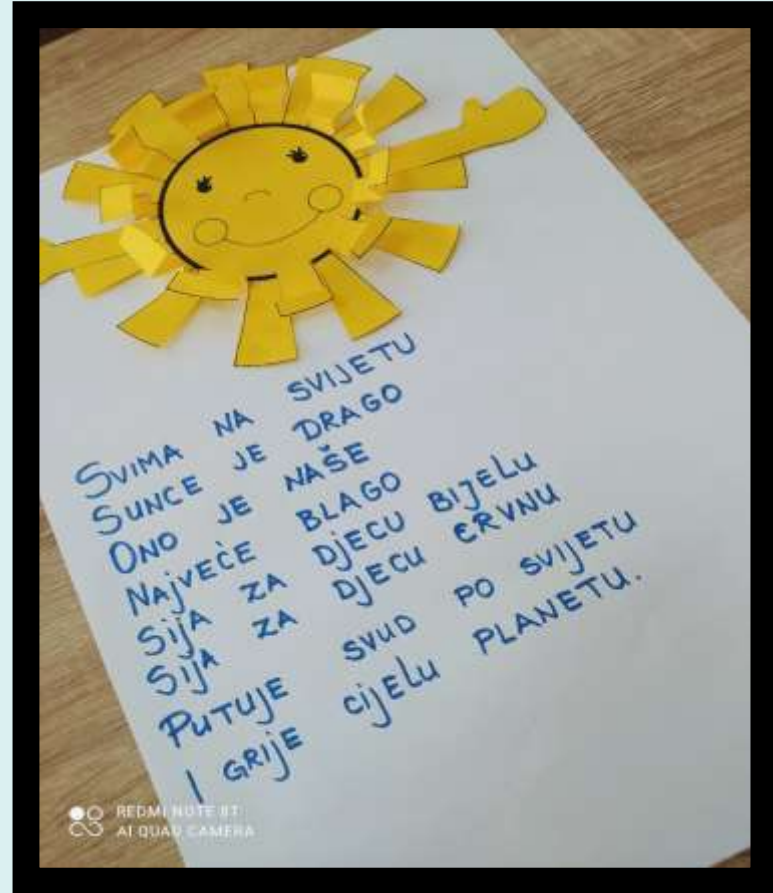 SVIMA NA SVIJETU
SUNCE JE DRAGO
ONO JE NAŠE
NAJVEĆE BLAGO
SIJA ZA DJECU BIJELU
SIJA ZA DJECU CRVNU
PUTUJE SVUD PO SVIJETU
I GRIJE CIJELU PLANETU.
REDMI NOTE 8T
AI QUAD CAMERA